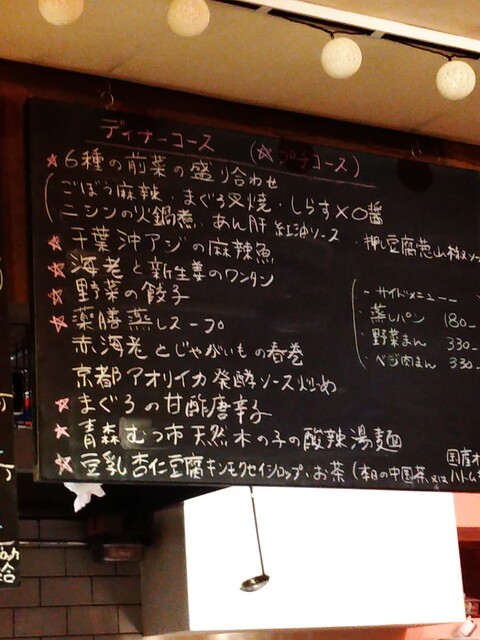 ディナーコース (☆プチコース)
☆6種の前菜の盛り合わせ
ごぼう麻辣・まぐろ叉焼・しらすXO醤
ニシンの火鍋煮・あん肝 紅油ソース ・押し豆腐
☆千葉沖アジの麻辣魚
☆海老と新生姜のワンタン
☆野菜の餃子
☆薬膳蒸しスープ
赤海老とじゃがいもの春巻
京都アオリイカ発酵ソース炒め
☆まぐろの甘酢唐辛子
☆青森むつ市天然木の子の酸辣湯麺
☆豆乳杏仁豆腐キンモクセイシロップ・お茶(本日の中国茶、又はハトム
- サイドメニュー -
・蒸しパン 180-
・野菜まん 330-
・ベジ肉まん 330-
国産オ